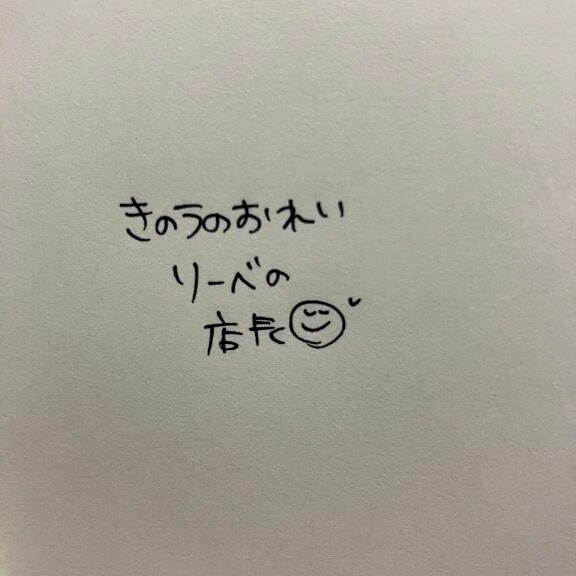 きのうのおれい
リーベの
店長